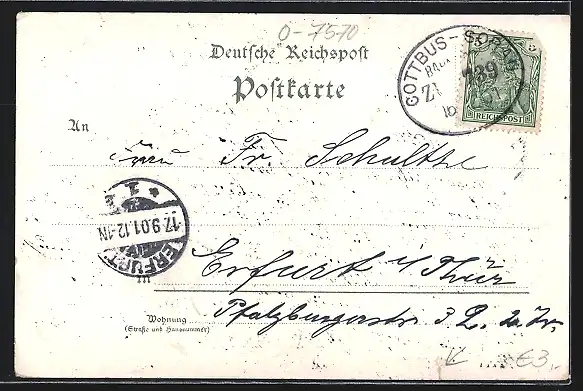 O-7570
Deutsche Reichspost
Postkarte
COTTBUS - SORAU
BAHN
139
REICHSPOST
An
Frau Fr. Schulthe
ERFURT
17.9.01.12-1N
* 1 f
Erfurt i/Thür
Wohnung
(Straße und Hausnummer)
Pfalzburgerstr. 3
€3